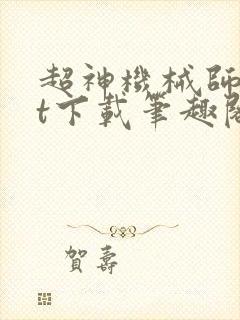 超神機械師
t下載筆趣閣
賀壽